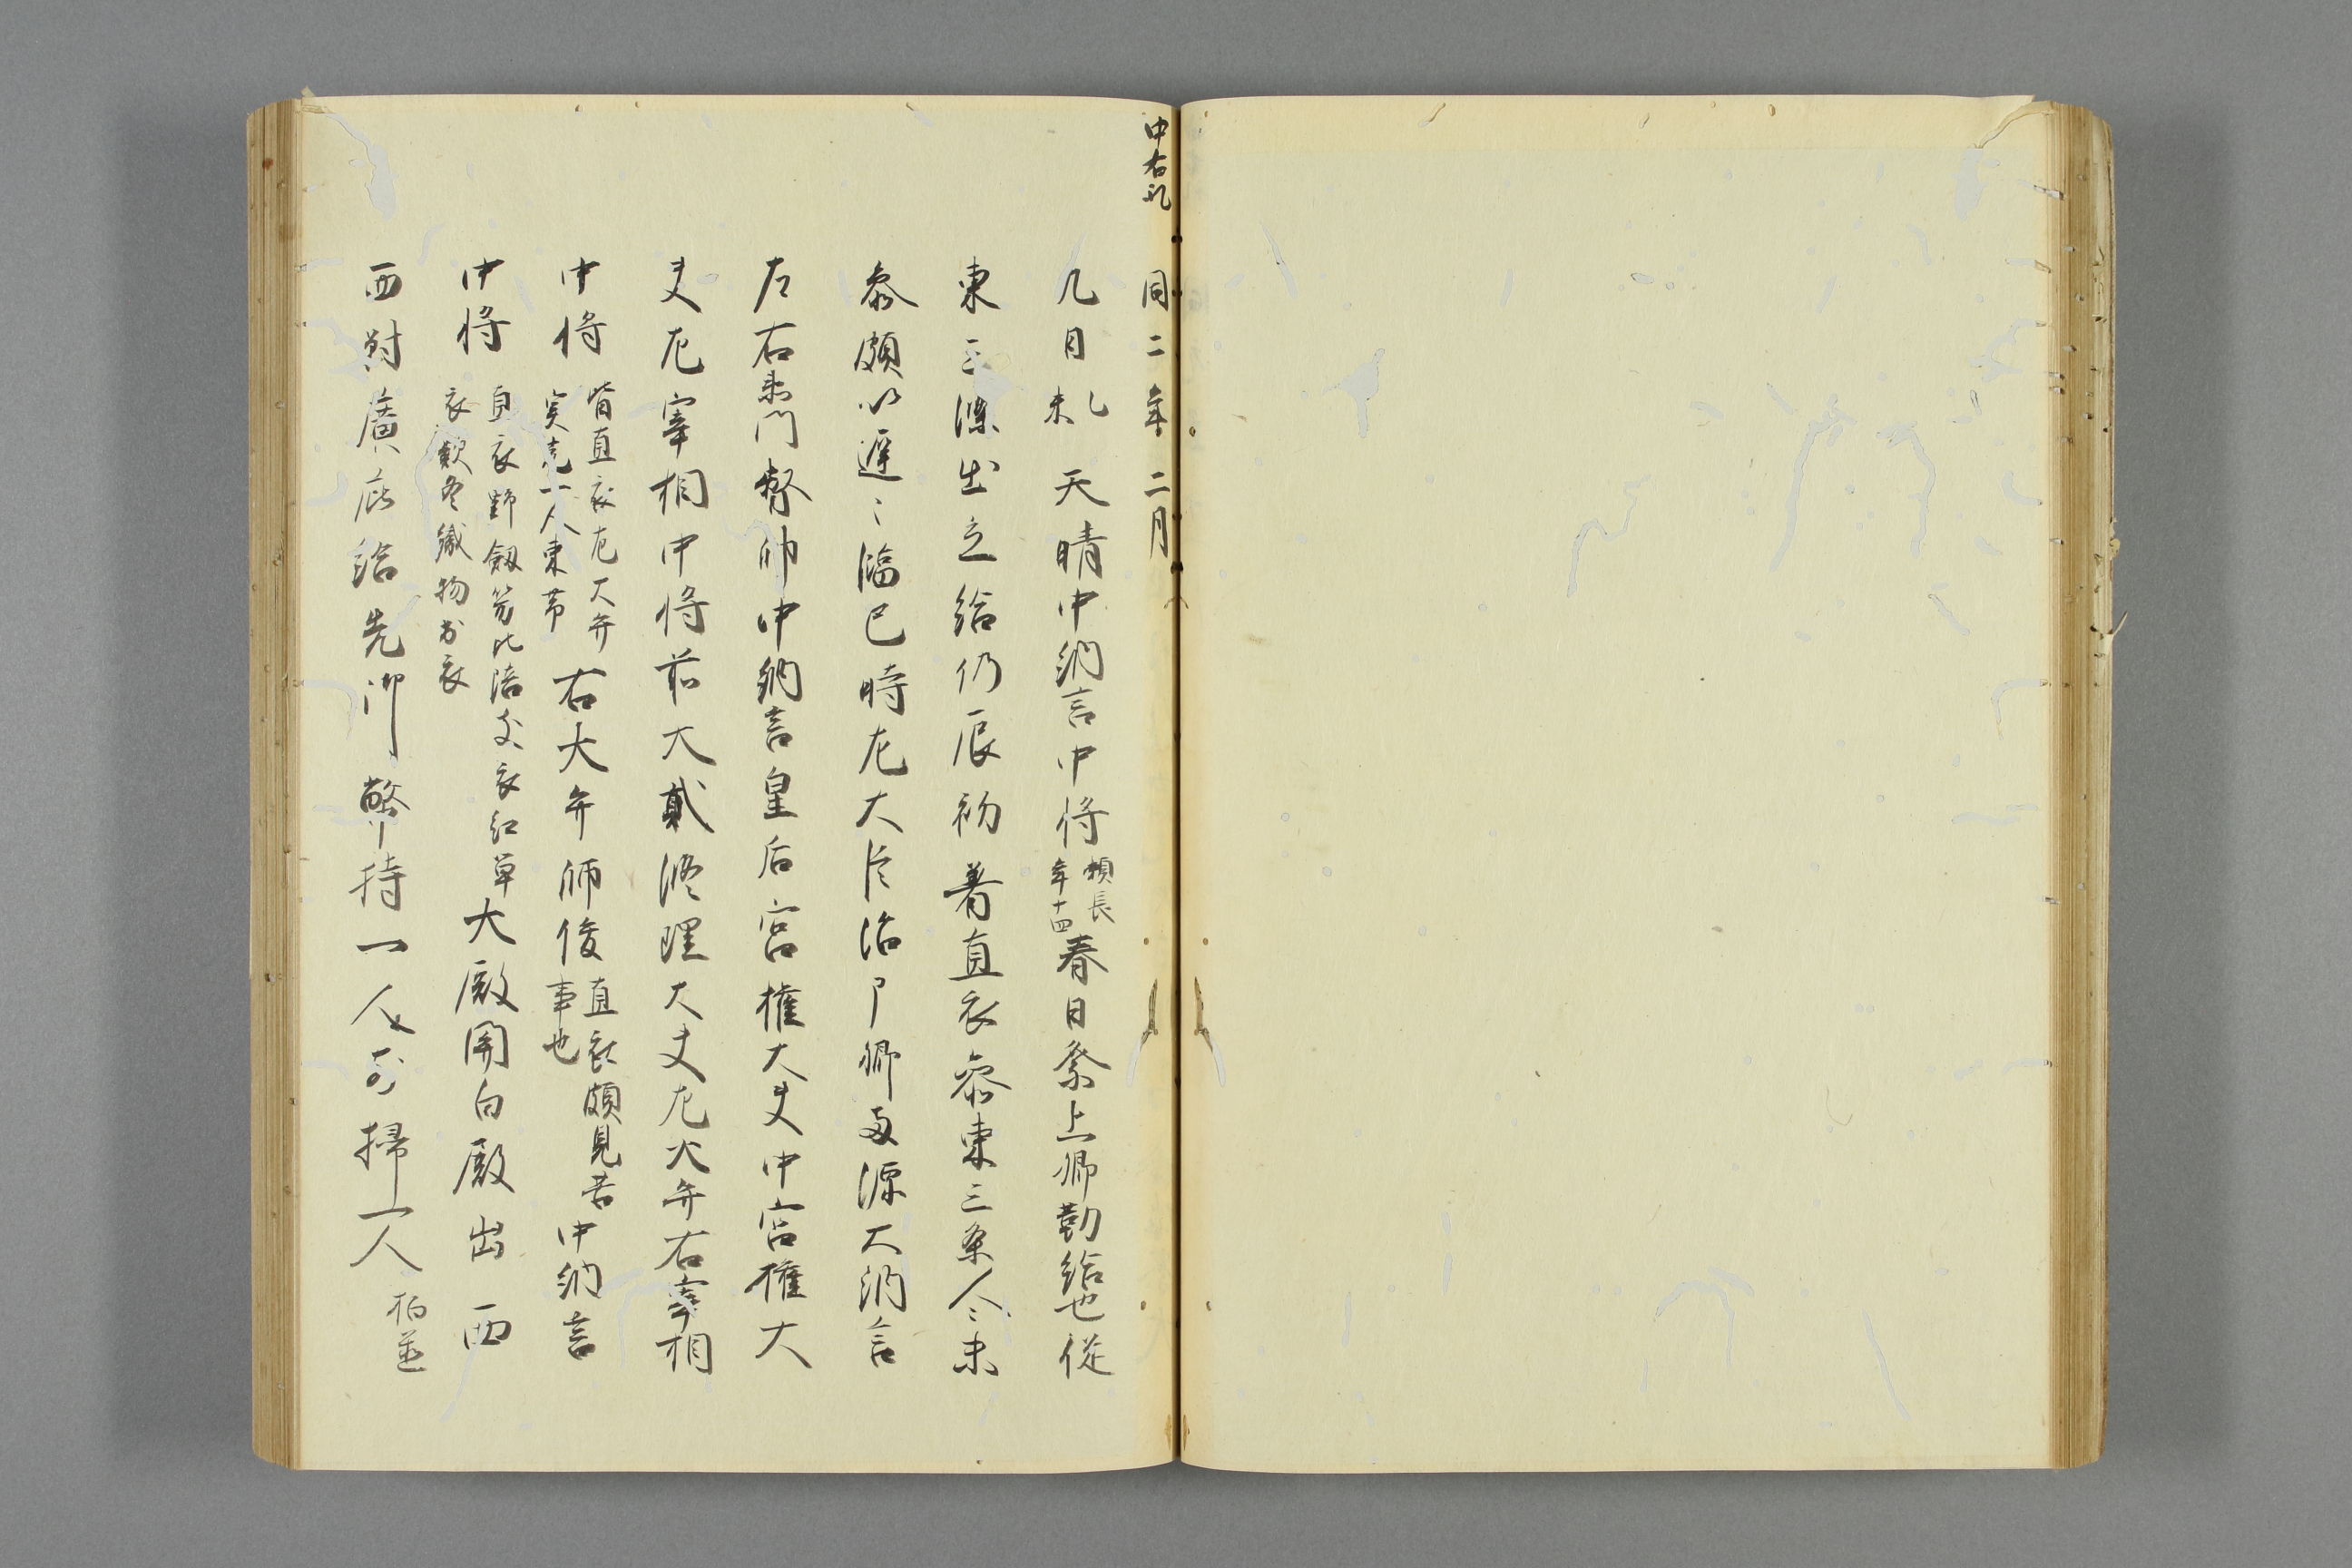 中右記
同二年二月
九日己未 天晴中納言中将頼長年十四春日祭上卿勤給也従
東三條出立給仍辰初着直衣参東三条人々未
参頗以遅々臨巳時左大臣治部卿両源大納言
左右衛門督帥中納言皇后宮権大夫中宮権大
夫左宰相中将前大貳修理大夫左大弁右宰相
中将皆直衣左大弁実光一人束帯右大弁師俊直衣頗見苦事也中納言
中将直衣野劔笏比浩文衣紅単衣款冬織物出衣大殿関白殿出西
西対廣庇給先御幣持一人取掃一人柏並